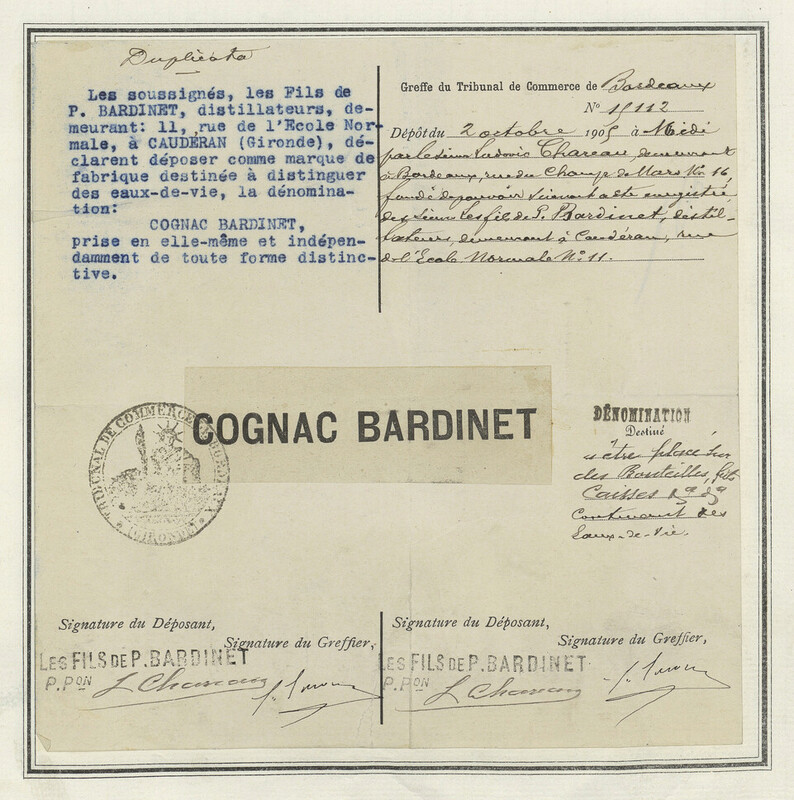 Duplicata
Les soussignés, les Fils de
P. BARDINET, distillateurs, de-
meurant: 11, rue de l'Ecole Nor-
male, à CAUDÉRAN (Gironde), dé-
clarent déposer comme marque de
fabrique destinée à distinguer
des eaux-de-vie, la dénomina-
tion:
COGNAC BARDINET,
prise en elle-même et indépen-
damment de toute forme distinc-
tive.
Greffe du Tribunal de Commerce de Bordeaux
N° 15112
Dépôt du 2 octobre 1905 à Midi
par le sieur Ludovic Chareau, demeurant
à Bordeaux, rue du Champ de Mars No 16,
fondé de pouvoir suivant acte enregistré
des sieurs les fils de P. Bardinet, distil-
lateurs, demeurant à Caudéran, rue
de l'École Normale N° 11.
COGNAC BARDINET
TRIBUNAL DE COMMERCE BORDEAUX
(GIRONDE)
DÉNOMINATION
Destiné
à être placé sur
des Bouteilles, fûts
Caisses
Contenant des
Eaux-de-Vie.
Signature du Déposant,
Signature du Greffier,
LES FILS DE P. BARDINET
P. PON
L. Chareau
Signature du Déposant,
Signature du Greffier,
LES FILS DE P. BARDINET
P. PON
L. Chareau